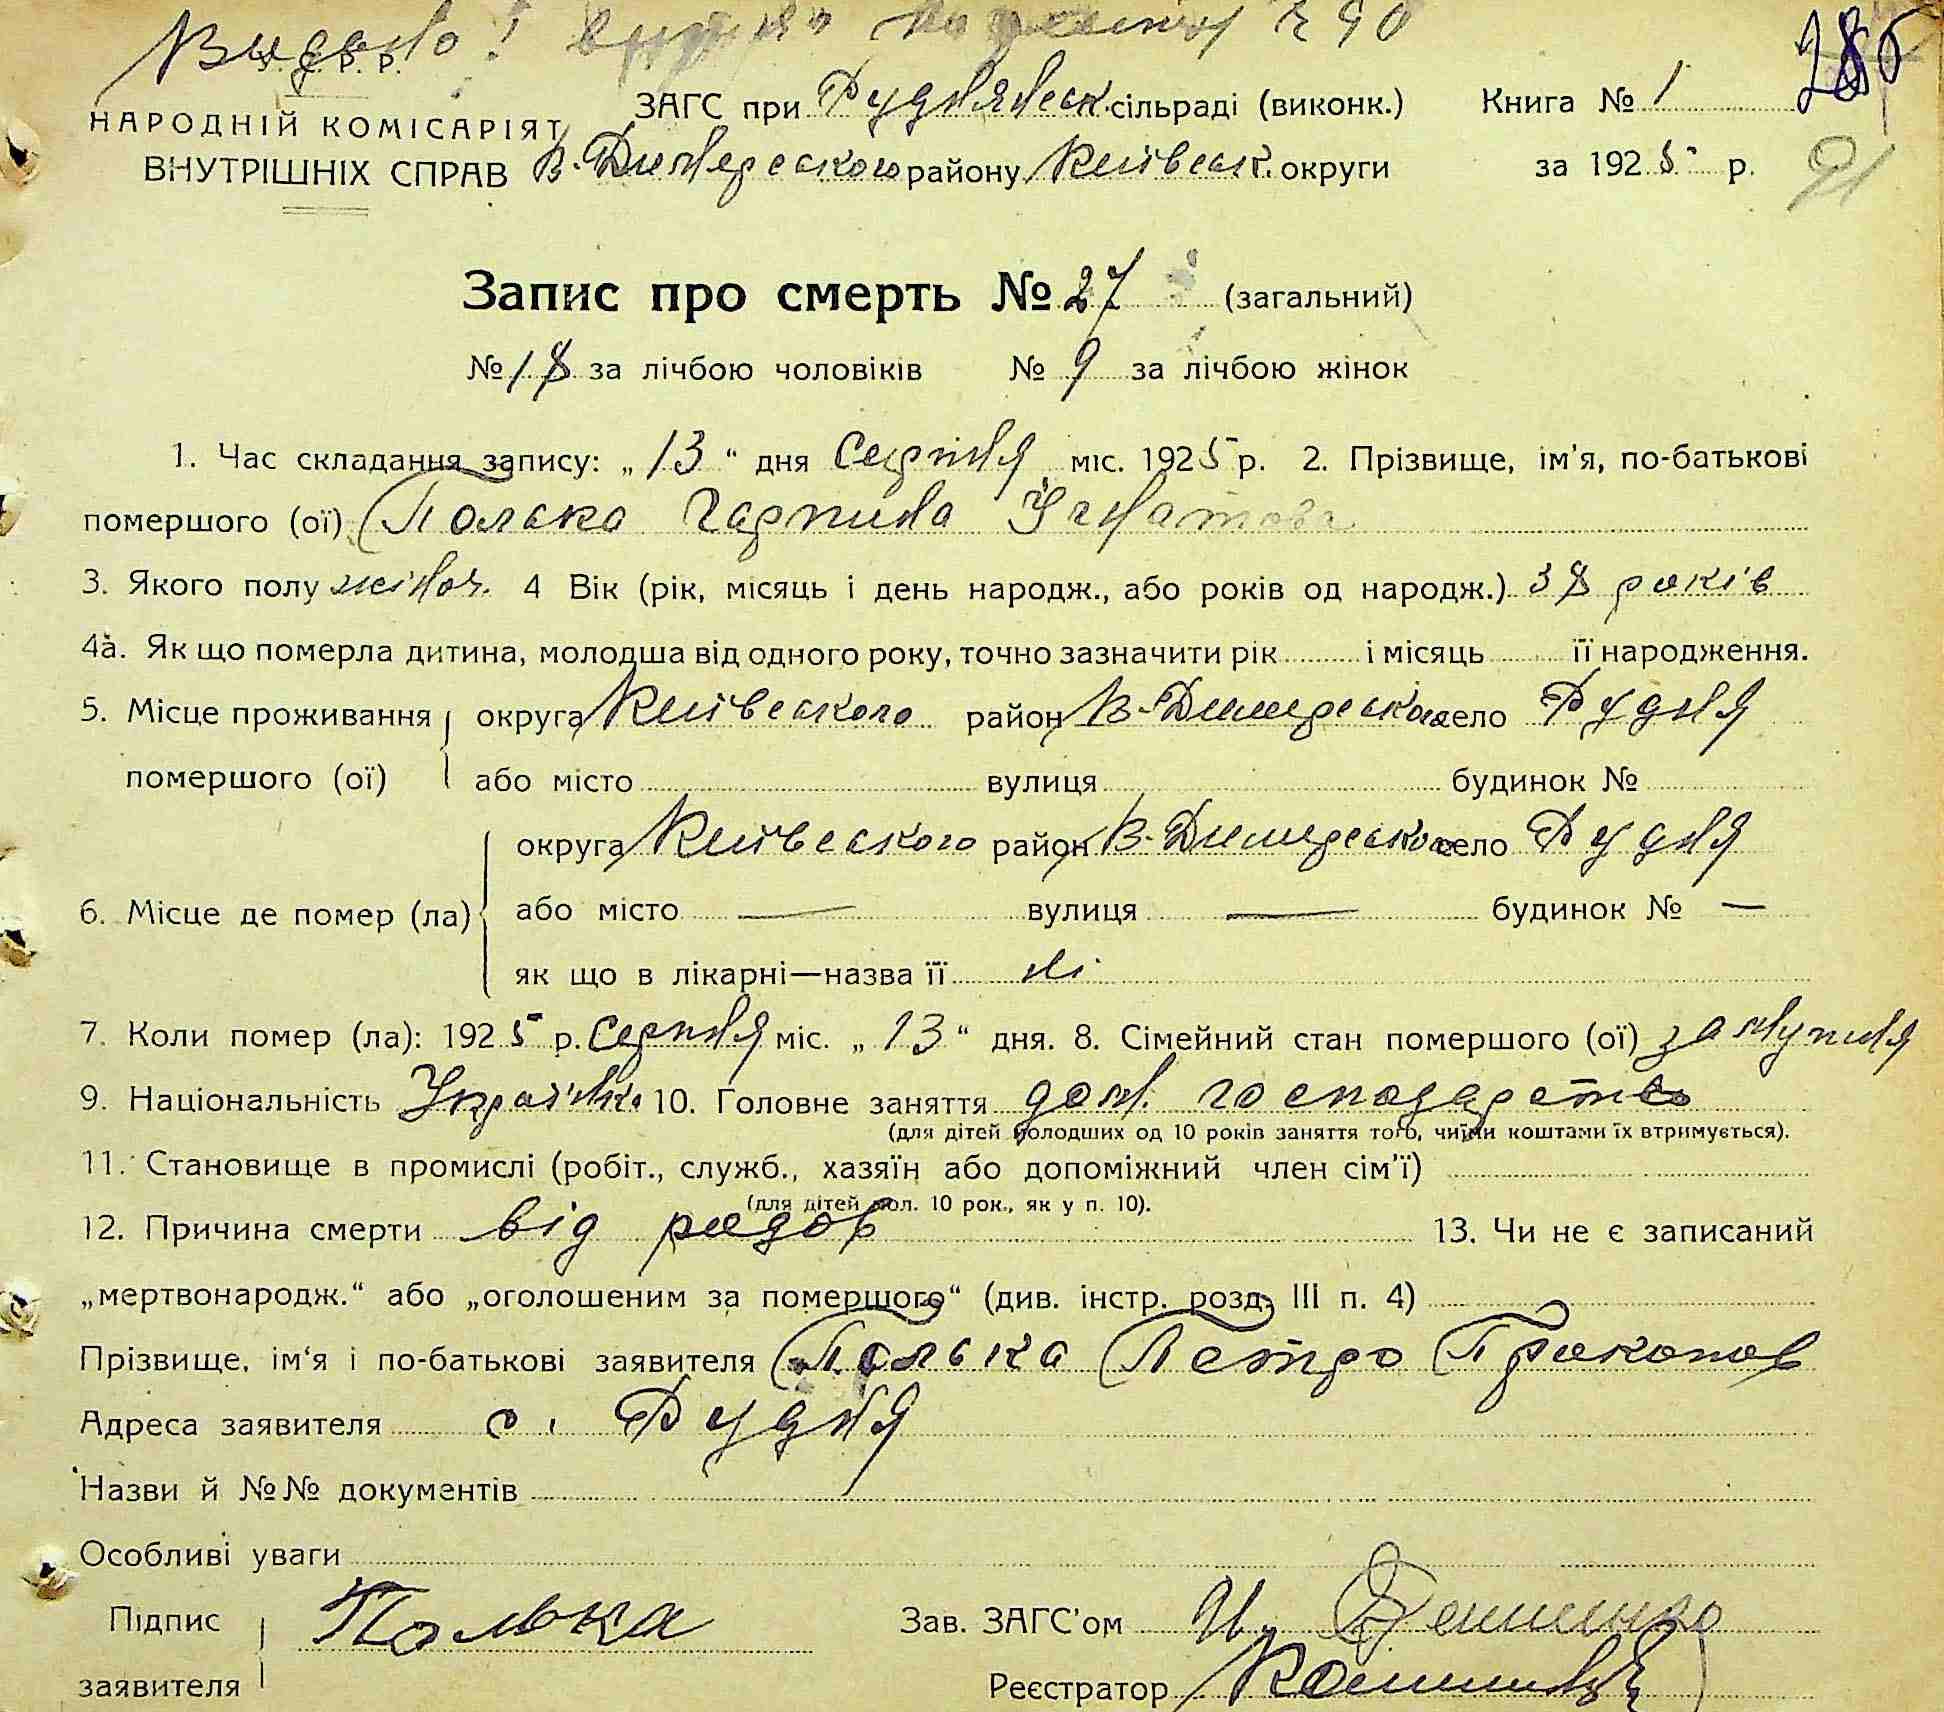 Видано!
У. С. Р. Р.
НАРОДНІЙ КОМІСАРІЯТ
ВНУТРІШНІХ СПРАВ
ЗАГС при Руднянськ. сільраді (виконк.) Книга № 1
В. Димерського району Київськ. округи за 1925 р. 91
Запис про смерть № 27 (загальний)
№ 18 за лічбою чоловіків № 9 за лічбою жінок
1. Час складання запису: „13“ дня Серпня міс. 1925 р. 2. Прізвище, ім'я, по-батькові
помершого (ої) Полька Гарпина Ігнатова
3. Якого полу жіноч. 4 Вік (рік, місяць і день народж., або років од народж.) 38 років
4а. Як що померла дитина, молодша від одного року, точно зазначити рік і місяць її народження.
5. Місце проживання округа Київського район В-Димерського село Рудня
помершого (ої) або місто вулиця будинок №
округа Київського район В-Димерського село Рудня
6. Місце де помер (ла) або місто — вулиця — будинок № —
як що в лікарні—назва її ні
7. Коли помер (ла): 1925 р. Серпня міс. „13“ дня. 8. Сімейний стан помершого (ої) замужня
9. Національність Українка 10. Головне заняття дом. господарство
(для дітей молодших од 10 років заняття того, чиїми коштами їх втримується).
11. Становище в промислі (робіт., служб., хазяїн або допоміжний член сім'ї)
(для дітей мол. 10 рок., як у п. 10).
12. Причина смерти від родов 13. Чи не є записаний
„мертвонародж.“ або „оголошеним за помершого“ (див. інстр. розд. III п. 4)
Прізвище, ім'я і по-батькові заявителя Полька Петро Прокопов
Адреса заявителя с. Рудня
Назви й №№ документів
Особливі уваги
Підпис заявителя Полька Зав. ЗАГС'ом
Реєстратор